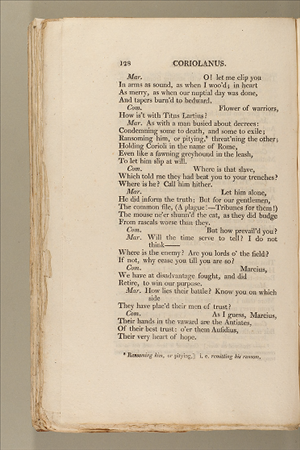 128 CORIOLANUS.
Mar. O! let me clip you
In arms as sound, as when I woo'd; in heart
As merry, as when our nuptial day was done,
And tapers burn'd to bedward.
Com. Flower of warriors,
How is't with Titus Lartius?
Mar. As with a man busied about decrees:
Condemning some to death, and some to exile;
Ransoming him, or pitying,⁴ threat'ning the other;
Holding Corioli in the name of Rome,
Even like a fawning greyhound in the leash,
To let him slip at will.
Com. Where is that slave,
Which told me they had beat you to your trenches?
Where is he? Call him hither.
Mar. Let him alone,
He did inform the truth: But for our gentlemen,
The common file, (A plague!—Tribunes for them!)
The mouse ne'er shunn'd the cat, as they did budge
From rascals worse than they.
Com. But how prevail'd you?
Mar. Will the time serve to tell? I do not
think——
Where is the enemy? Are you lords o' the field?
If not, why cease you till you are so?
Com. Marcius,
We have at disadvantage fought, and did
Retire, to win our purpose.
Mar. How lies their battle? Know you on which
side
They have plac'd their men of trust?
Com. As I guess, Marcius,
Their bands in the vaward are the Antiates,
Of their best trust: o'er them Aufidius,
Their very heart of hope.
⁴ Ransoming him, or pitying,] i. e. remitting his ransom,